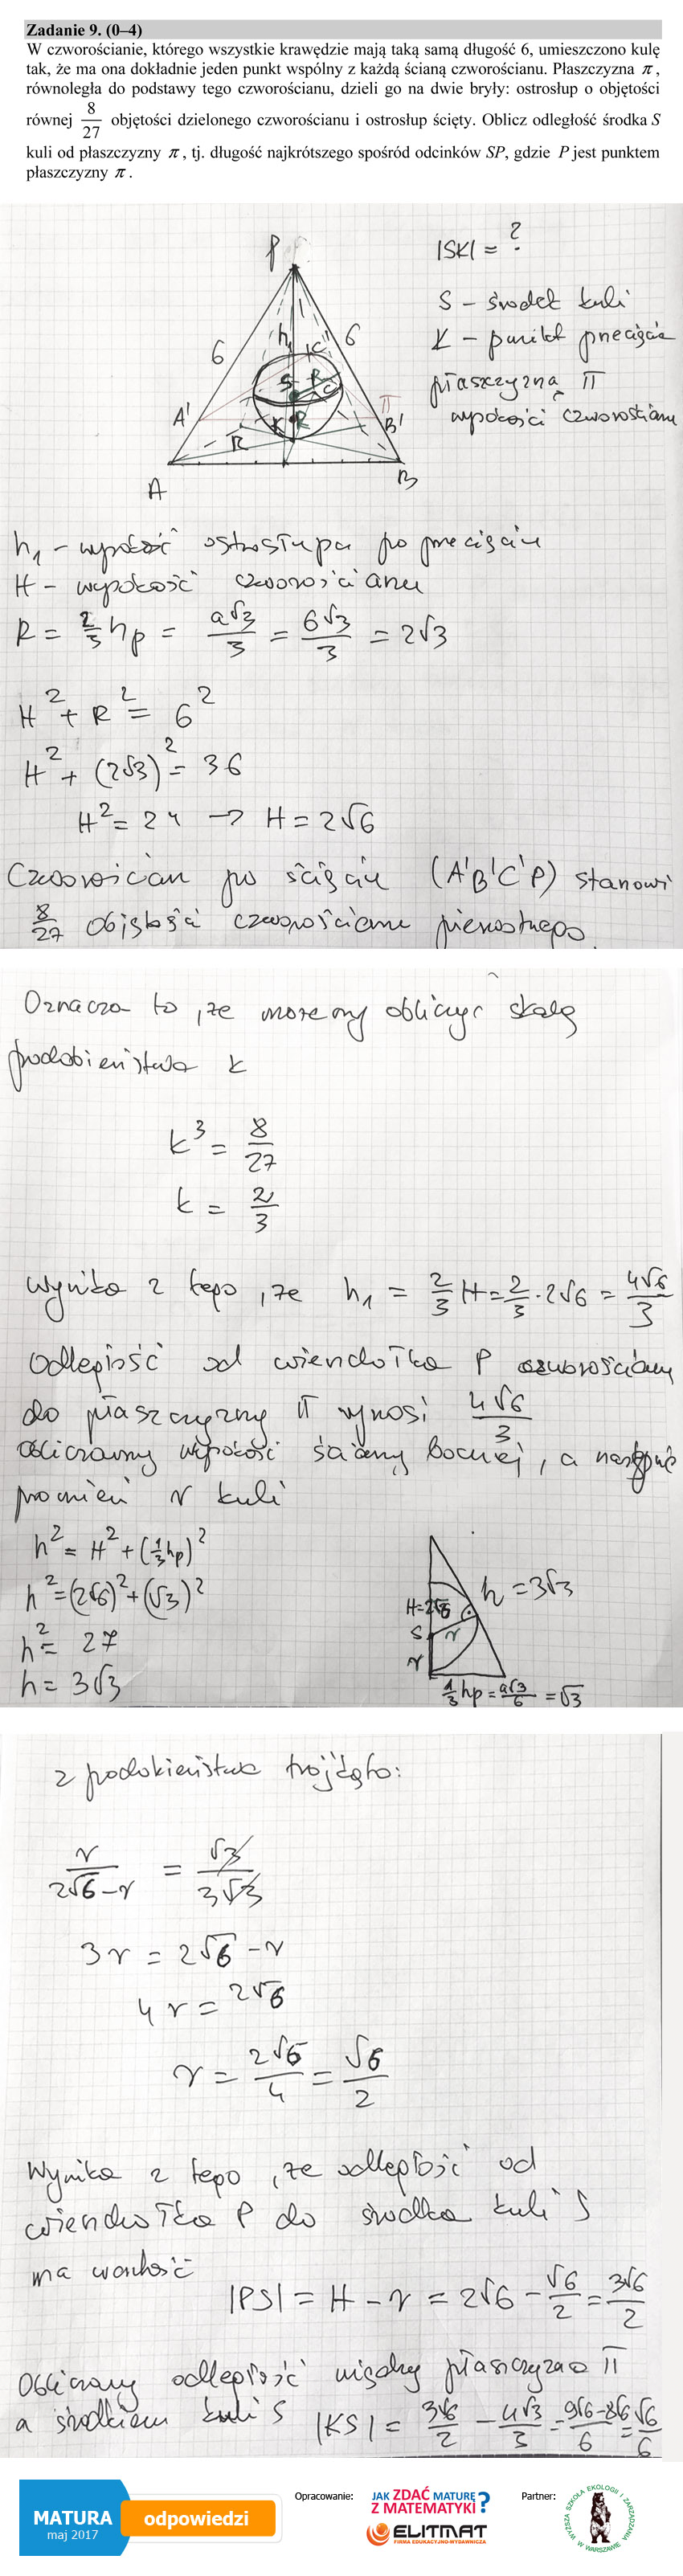 Zadanie 9. (0–4)
W czworościanie, którego wszystkie krawędzie mają taką samą długość 6, umieszczono kulę
tak, że ma ona dokładnie jeden punkt wspólny z każdą ścianą czworościanu. Płaszczyzna π,
równoległa do podstawy tego czworościanu, dzieli go na dwie bryły: ostrosłup o objętości
równej 8/27 objętości dzielonego czworościanu i ostrosłup ścięty. Oblicz odległość środka S
kuli od płaszczyzny π, tj. długość najkrótszego spośród odcinków SP, gdzie P jest punktem
płaszczyzny π.
P
|SK| = ?
S – środek kuli
K – punkt przecięcia
płaszczyzną π
wysokości czworościanu
6
h₁
6
C'
S
R
C
A'
π
K
R
B'
R
A
B
h₁ – wysokość ostrosłupa po przecięciu
H – wysokość czworościanu
R = 2/3 hp = a√3/3 = 6√3/3 = 2√3
H² + R² = 6²
H² + (2√3)² = 36
H² = 24 → H = 2√6
Czworościan po ścięciu (A'B'C'P) stanowi
8/27 objętości czworościanu pierwotnego.
Oznacza to, że możemy obliczyć skalę
podobieństwa k
k³ = 8/27
k = 2/3
Wynika z tego, że h₁ = 2/3 H = 2/3 · 2√6 = 4√6/3
Odległość od wierzchołka P czworościanu
do płaszczyzny π wynosi 4√6/3
Obliczamy wysokość ściany bocznej, a następnie
promień r kuli
h² = H² + (1/3 hp)²
h² = (2√6)² + (√3)²
h² = 27
h = 3√3
H=2√6
h = 3√3
S
r
r
1/3 hp = a√3/6 = √3
z podobieństwa trójkątów:
r/(2√6 – r) = √3/3√3
3r = 2√6 – r
4r = 2√6
r = 2√6/4 = √6/2
Wynika z tego, że odległość od
wierzchołka P do środka kuli S
ma wartość
|PS| = H – r = 2√6 – √6/2 = 3√6/2
Obliczamy odległość między płaszczyzną π
a środkiem kuli S |KS| = 3√6/2 – 4√3/3 = 9√6–8√6/6 = √6/6
MATURA
maj 2017
odpowiedzi
Opracowanie:
JAK ZDAĆ MATURĘ
Z MATEMATYKI?
ELITMAT
FIRMA EDUKACYJNO-WYDAWNICZA
Partner:
WYŻSZA SZKOŁA EKOLOGII I ZARZĄDZANIA
W WARSZAWIE